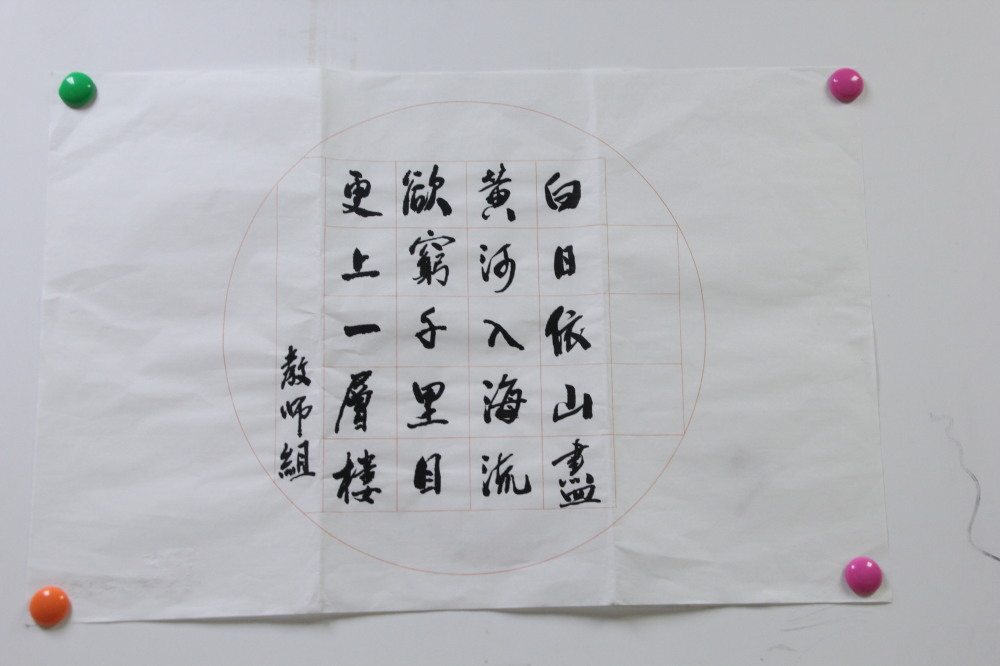 白日依山盡
黃河入海流
欲窮千里目
更上一層樓
教师組